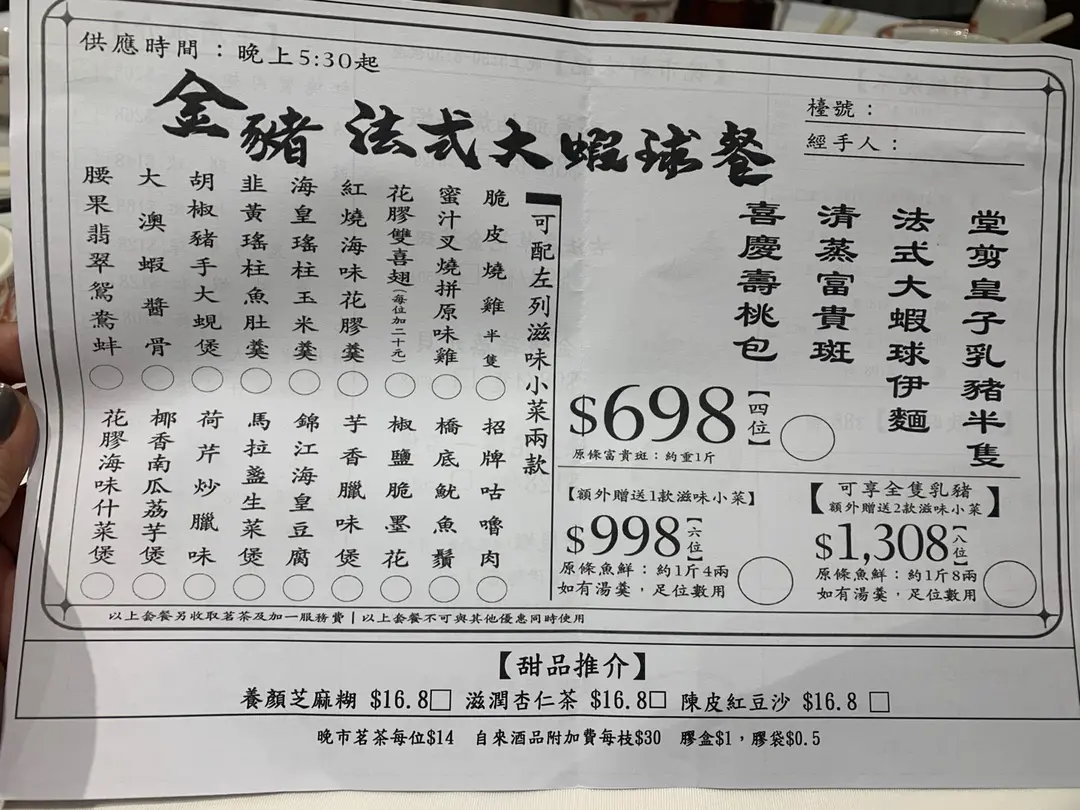 供應時間：晚上5:30起
金豬法式大蝦球餐
檯號：
經手人：
堂剪皇子乳豬半隻
法式大蝦球伊麵
清蒸富貴斑
喜慶壽桃包
$698【四位】
原條富貴斑：約重1斤
【額外贈送1款滋味小菜】
$998【六位】
原條魚鮮：約1斤4兩
如有湯羹，足位數用
【可享全隻乳豬
額外贈送2款滋味小菜】
$1,308【八位】
原條魚鮮：約1斤8兩
如有湯羹，足位數用
可配左列滋味小菜兩款
脆皮燒雞半隻
蜜汁叉燒拼原味雞
花膠雙喜翅(每位加二十元)
紅燒海味花膠羹
海皇瑤柱玉米羹
韭黃瑤柱魚肚羹
胡椒豬手大蜆煲
大澳蝦醬骨
腰果翡翠鴛鴦蚌
招牌咕嚕肉
橋底魷魚鬚
椒鹽脆墨花
芋香臘味煲
錦江海皇豆腐
馬拉盞生菜煲
荷芹炒臘味
椰香南瓜荔芋煲
花膠海味什菜煲
以上套餐另收取茗茶及加一服務費 | 以上套餐不可與其他優惠同時使用
【甜品推介】
養顏芝麻糊 $16.8□ 滋潤杏仁茶 $16.8□ 陳皮紅豆沙 $16.8 □
晚市茗茶每位$14 自來酒品附加費每枝$30 膠盒$1，膠袋$0.5